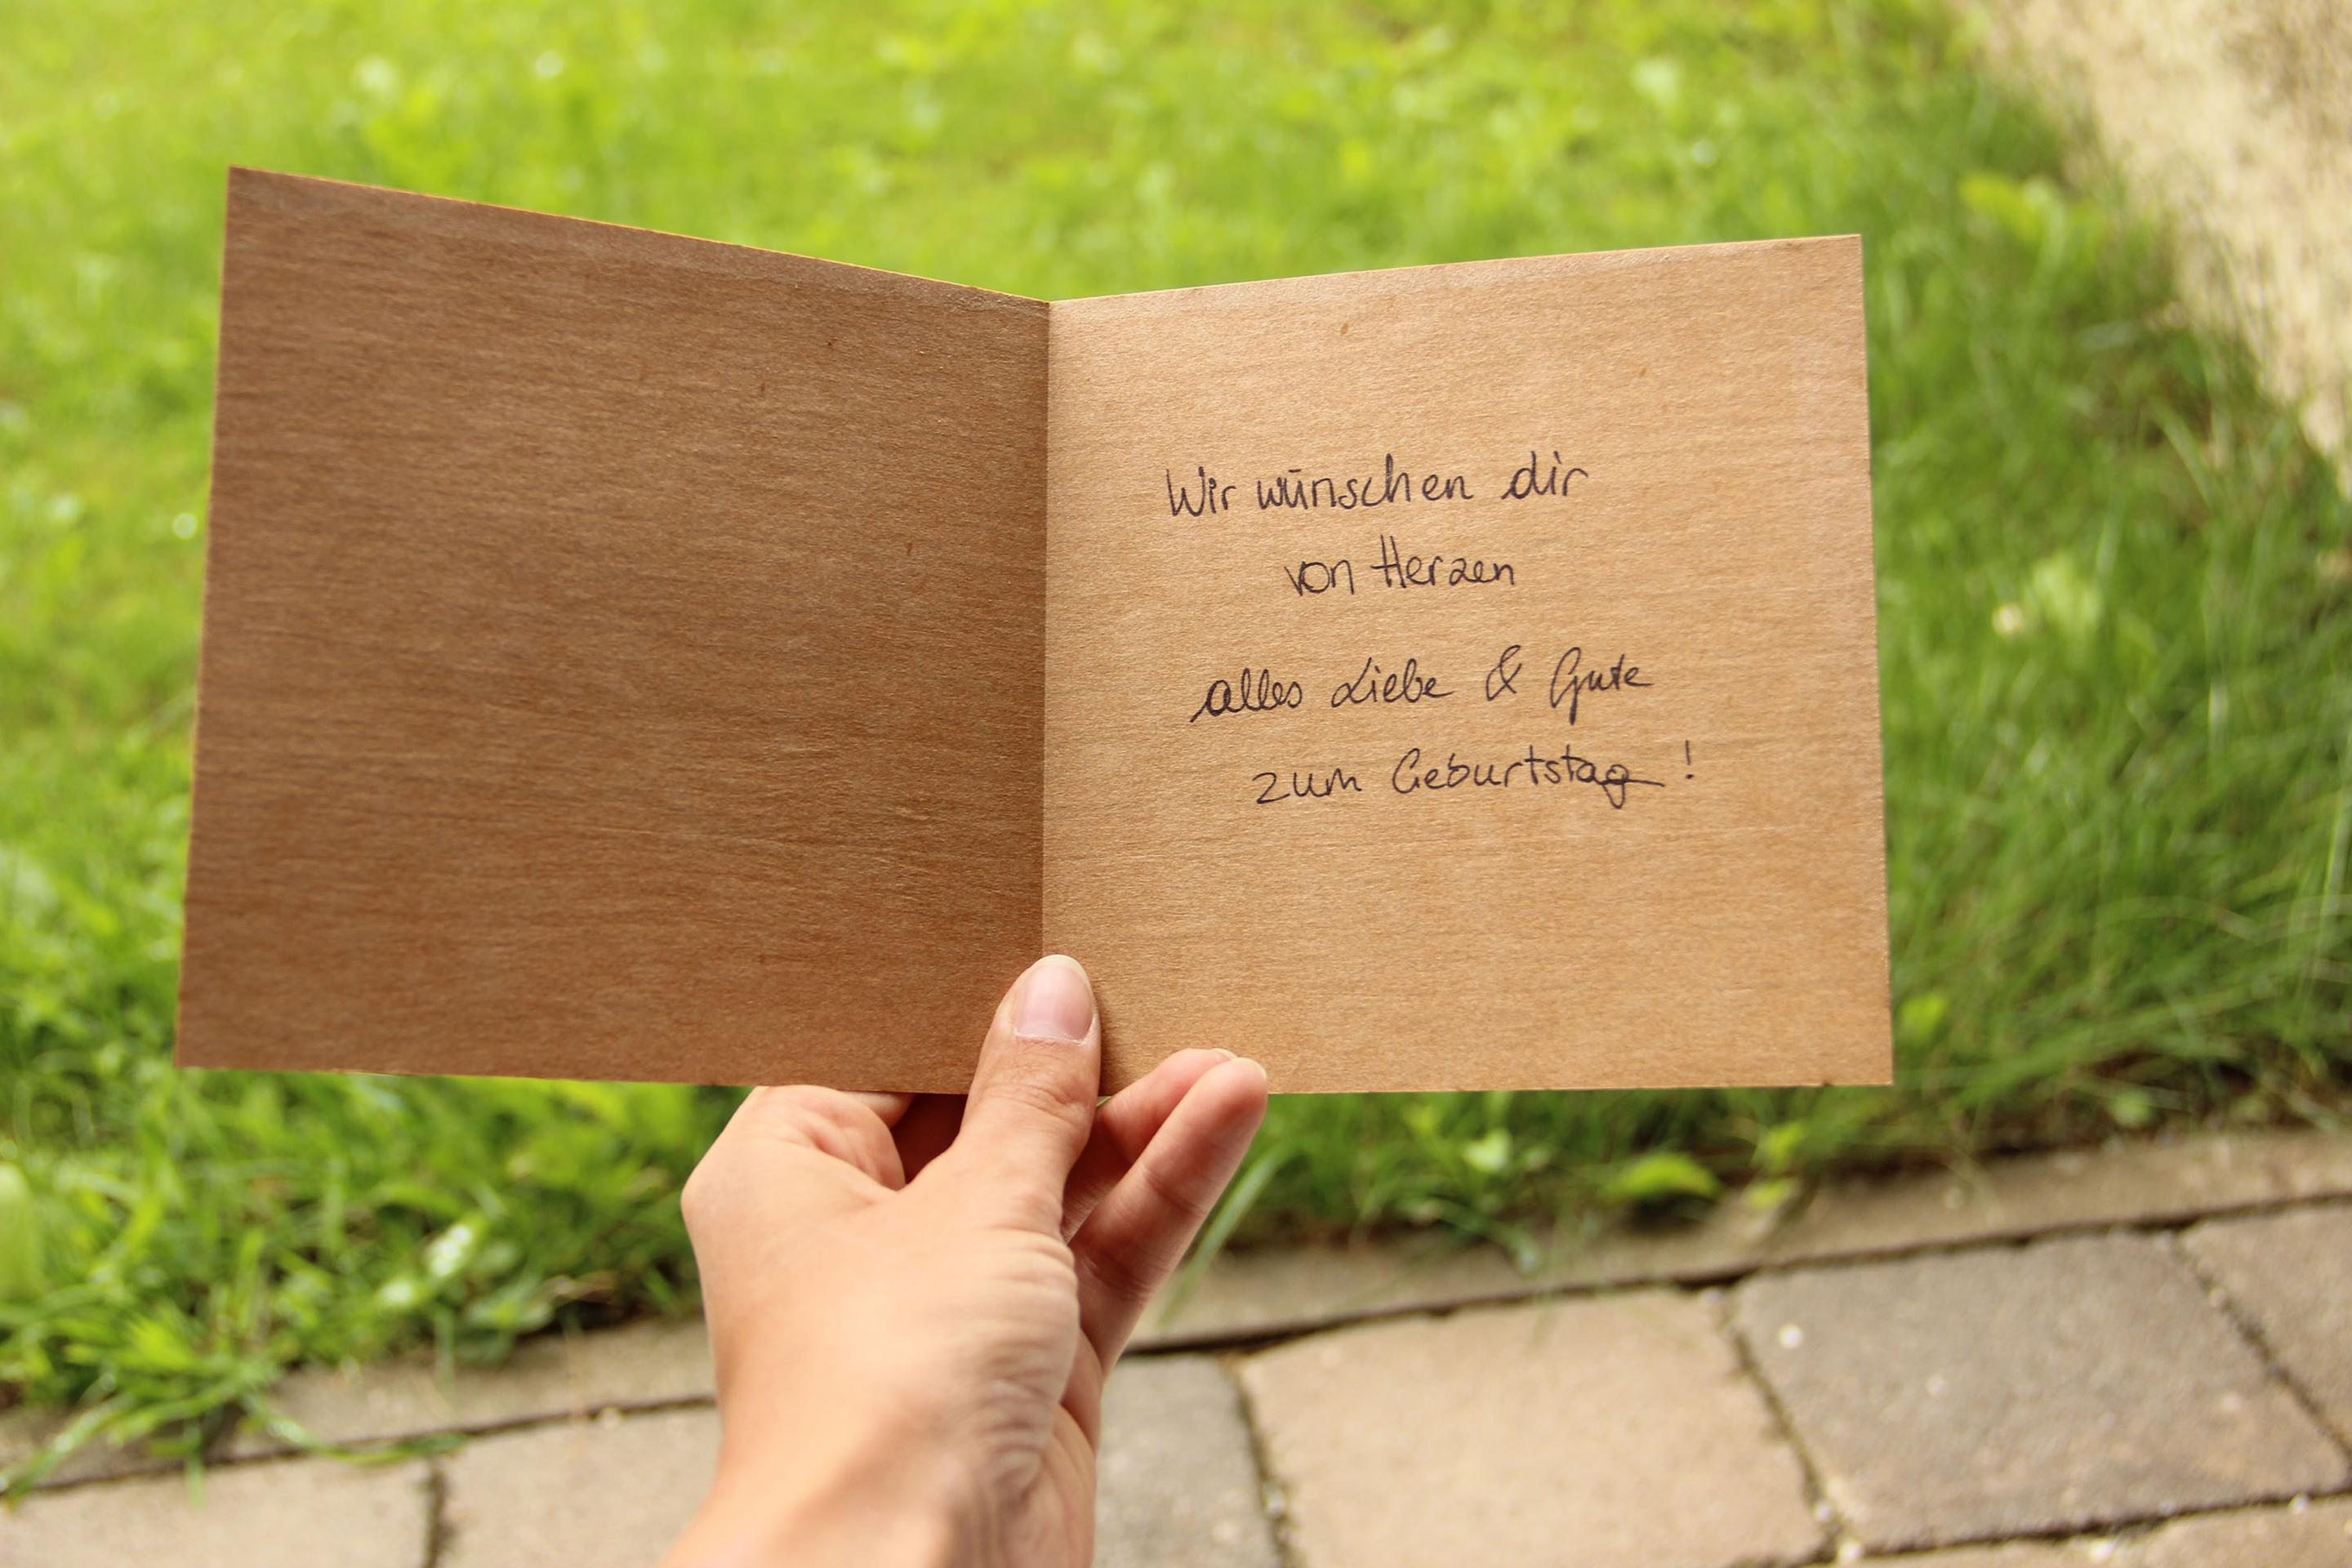 Wir wünschen dir
von Herzen
alles Liebe & Gute
zum Geburtstag!